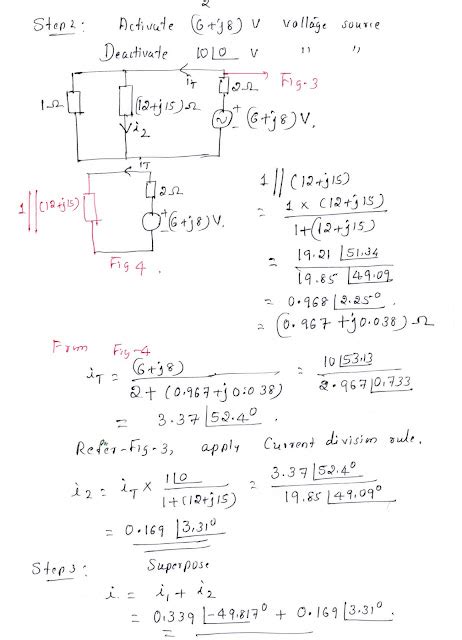 2
Step 2: Activate (6+j8) V voltage source
Deactivate 10∠0 V " "
iT
1Ω
(12+j15)Ω
i2
2Ω
Fig.3
+
-
(6+j8) V.
iT
1||(12+j15)
2Ω
+
-
(6+j8) V.
Fig 4.
1 || (12+j15)
= 1 × (12+j15) / 1+(12+j15)
= 19.21 ∠51.34 / 19.85 ∠49.09
= 0.968 ∠2.25°.
= (0.967 + j0.038) Ω
From Fig-4
iT = (6+j8) / 2 + (0.967+j0.038) = 10∠53.13 / 2.967∠0.733
= 3.37 ∠52.4°.
Refer-Fig-3, apply Current division rule.
i2 = iT × 1∠0 / 1+(12+j15) = 3.37∠52.4° / 19.85 ∠49.09°
= 0.169 ∠3.31°
Step 3: Superpose
i = i1 + i2
= 0.339 ∠-49.817° + 0.169 ∠3.31°.
=